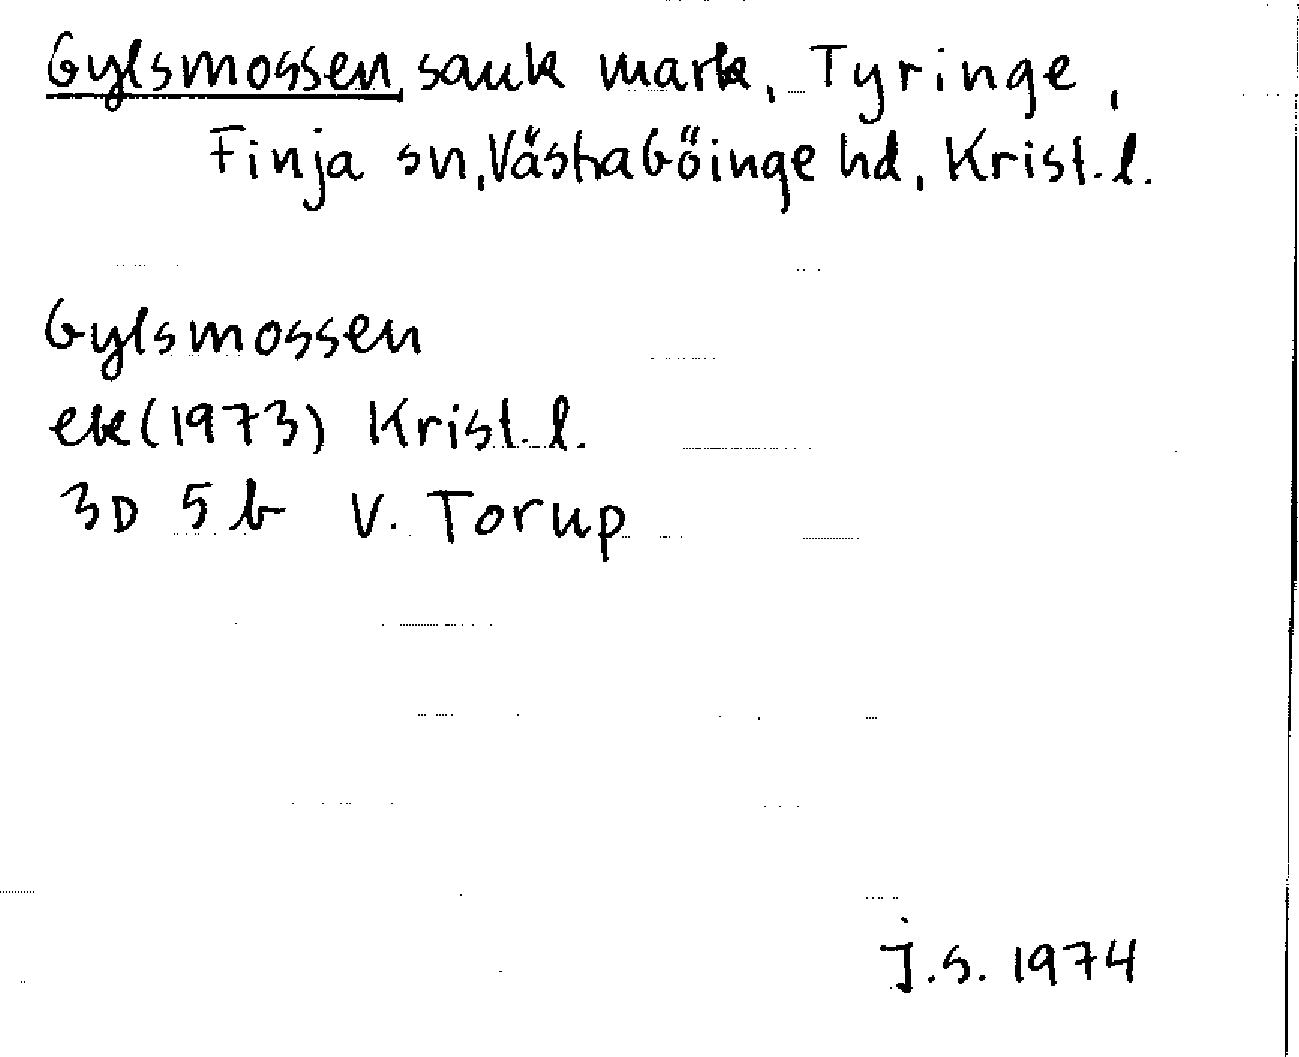 Gylsmossen, sank mark, Tyringe,
Finja sn, Västra Göinge hd, Krist. l.
Gylsmossen
ek (1973) Krist. l.
3D 5b V. Torup
J.S. 1974